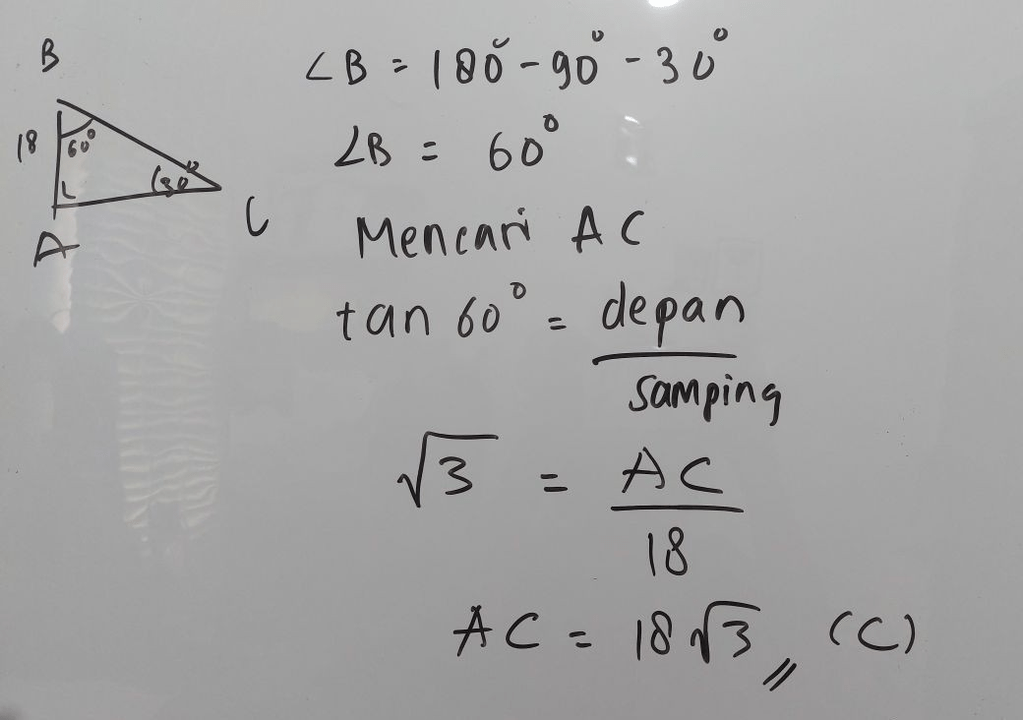 B
18
60°
30°
A
C
∠B = 180° - 90° - 30°
∠B = 60°
Mencari AC
tan 60° = depan
samping
√3 = AC
18
AC = 18√3 // (C)